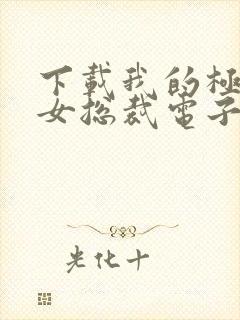 下載我的極
女总裁電子
光化十